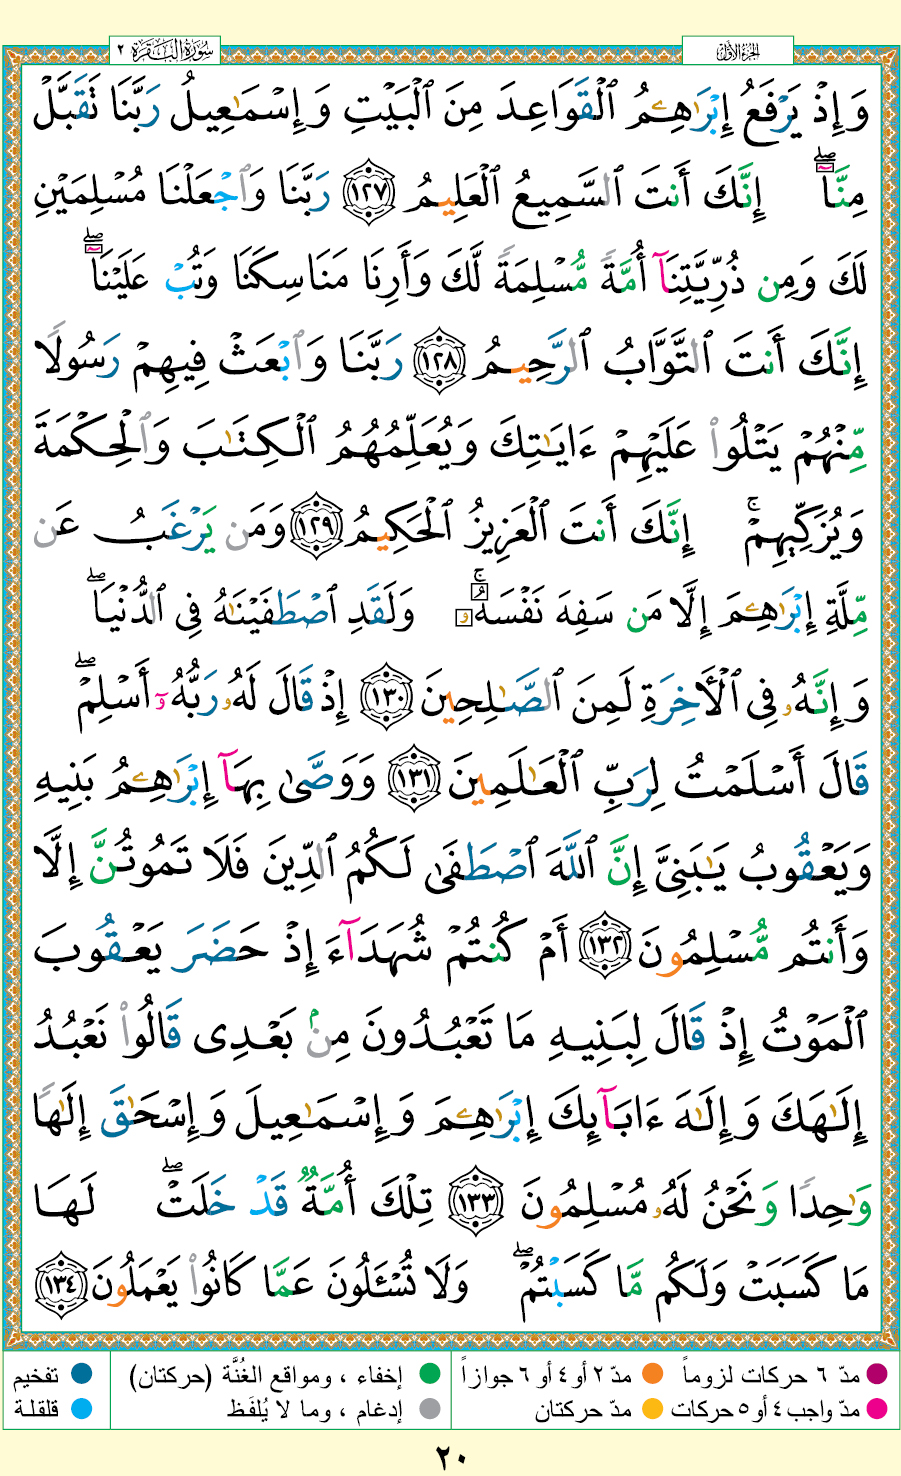 سُورَةُ البَقَرَةِ ٢
الجُزءُ الأوّلُ
وَإِذْ يَرْفَعُ إِبْرَٰهِـۧمُ ٱلْقَوَاعِدَ مِنَ ٱلْبَيْتِ وَإِسْمَـٰعِيلُ رَبَّنَا تَقَبَّلْ
مِنَّآۖ إِنَّكَ أَنتَ ٱلسَّمِيعُ ٱلْعَلِيمُ ١٢٧ رَبَّنَا وَٱجْعَلْنَا مُسْلِمَيْنِ
لَكَ وَمِن ذُرِّيَّتِنَآ أُمَّةً مُّسْلِمَةً لَّكَ وَأَرِنَا مَنَاسِكَنَا وَتُبْ عَلَيْنَآۖ
إِنَّكَ أَنتَ ٱلتَّوَّابُ ٱلرَّحِيمُ ١٢٨ رَبَّنَا وَٱبْعَثْ فِيهِمْ رَسُولًا
مِّنْهُمْ يَتْلُوا۟ عَلَيْهِمْ ءَايَـٰتِكَ وَيُعَلِّمُهُمُ ٱلْكِتَـٰبَ وَٱلْحِكْمَةَ
وَيُزَكِّيهِمْۚ إِنَّكَ أَنتَ ٱلْعَزِيزُ ٱلْحَكِيمُ ١٢٩ وَمَن يَرْغَبُ عَن
مِّلَّةِ إِبْرَٰهِـۧمَ إِلَّا مَن سَفِهَ نَفْسَهُۥۚ وَلَقَدِ ٱصْطَفَيْنَـٰهُ فِى ٱلدُّنْيَاۖ
وَإِنَّهُۥ فِى ٱلْـَٔاخِرَةِ لَمِنَ ٱلصَّـٰلِحِينَ ١٣٠ إِذْ قَالَ لَهُۥ رَبُّهُۥٓ أَسْلِمْۖ
قَالَ أَسْلَمْتُ لِرَبِّ ٱلْعَـٰلَمِينَ ١٣١ وَوَصَّىٰ بِهَآ إِبْرَٰهِـۧمُ بَنِيهِ
وَيَعْقُوبُ يَـٰبَنِىَّ إِنَّ ٱللَّهَ ٱصْطَفَىٰ لَكُمُ ٱلدِّينَ فَلَا تَمُوتُنَّ إِلَّا
وَأَنتُم مُّسْلِمُونَ ١٣٢ أَمْ كُنتُمْ شُهَدَآءَ إِذْ حَضَرَ يَعْقُوبَ
ٱلْمَوْتُ إِذْ قَالَ لِبَنِيهِ مَا تَعْبُدُونَ مِنۢ بَعْدِى قَالُوا۟ نَعْبُدُ
إِلَـٰهَكَ وَإِلَـٰهَ ءَابَآئِكَ إِبْرَٰهِـۧمَ وَإِسْمَـٰعِيلَ وَإِسْحَـٰقَ إِلَـٰهًا
وَٰحِدًا وَنَحْنُ لَهُۥ مُسْلِمُونَ ١٣٣ تِلْكَ أُمَّةٌ قَدْ خَلَتْۖ لَهَا
مَا كَسَبَتْ وَلَكُم مَّا كَسَبْتُمْۖ وَلَا تُسْـَٔلُونَ عَمَّا كَانُوا۟ يَعْمَلُونَ ١٣٤
مدّ ٦ حركات لزوماً مدّ ٢ أو ٤ أو ٦ جوازاً إخفاء ، ومواقع الغُنَّة (حركتان) تفخيم
مدّ واجب ٤ أو ٥ حركات مدّ حركتان إدغام ، وما لا يُلفَظ قلقلة
٢٠